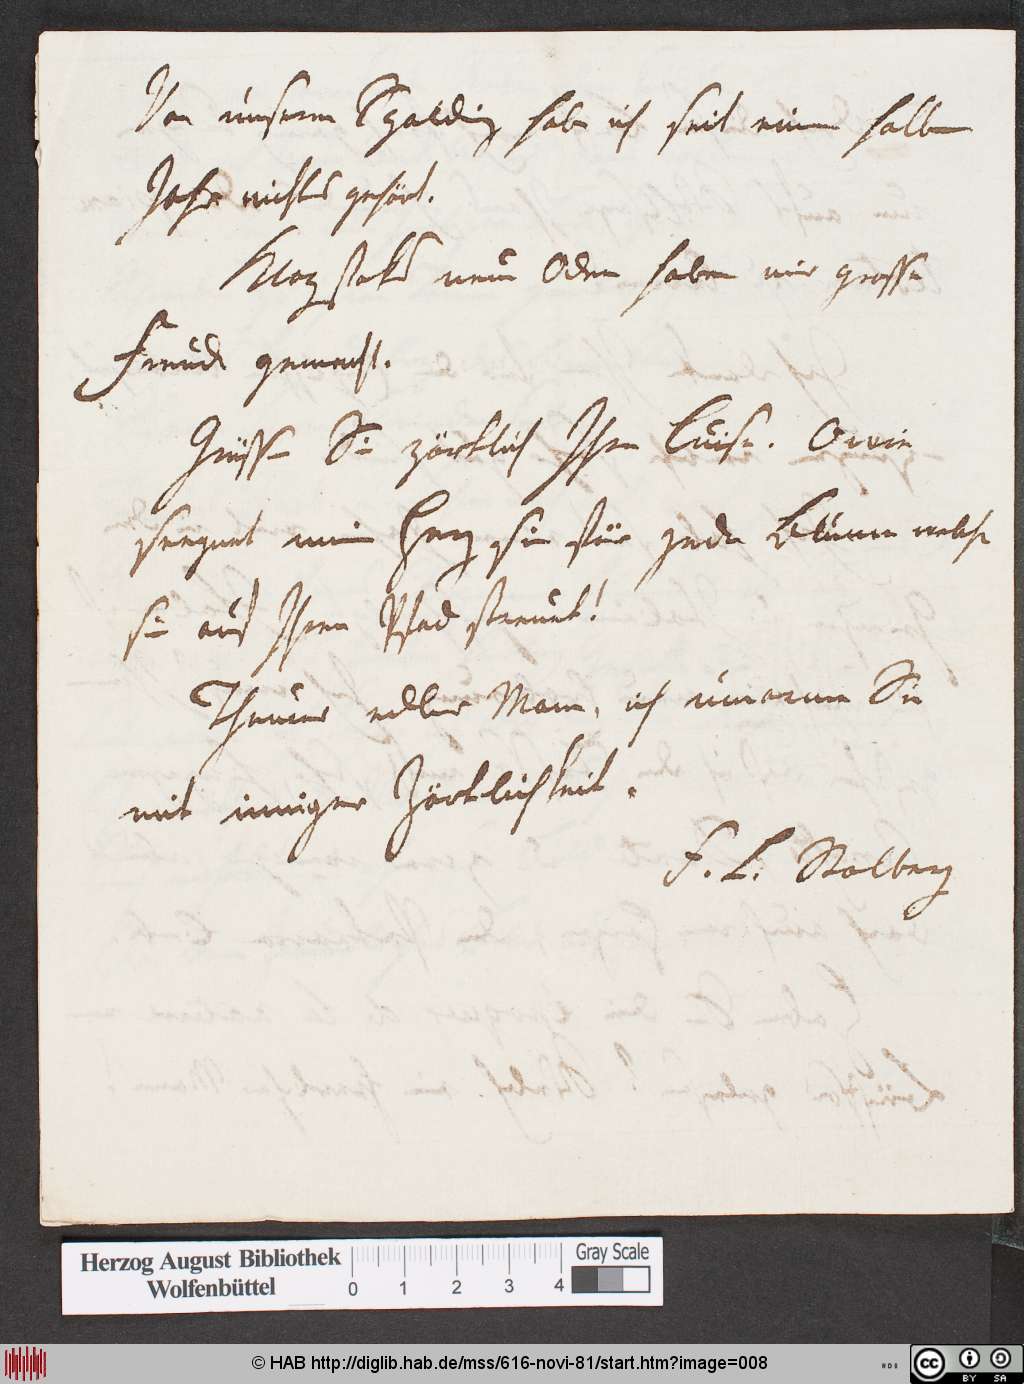 Von unserm Spalding habe ich seit einem halben
Jahre nichts gehört.
Klopstoks neue Oden haben mir grosse
Freude gemacht.
Grüssen Sie zärtlich Ihre Luise. O wie
seegnet mein Herz sie für jede Blume welche
sie auf Ihren Pfad streuet!
Theurer edler Mann, ich umarme Sie
mit inniger Zärtlichkeit.
F. L. Stolberg
Herzog August Bibliothek
Wolfenbüttel
0 1 2 3 4
Gray Scale
© HAB http://diglib.hab.de/mss/616-novi-81/start.htm?image=008
cc BY SA